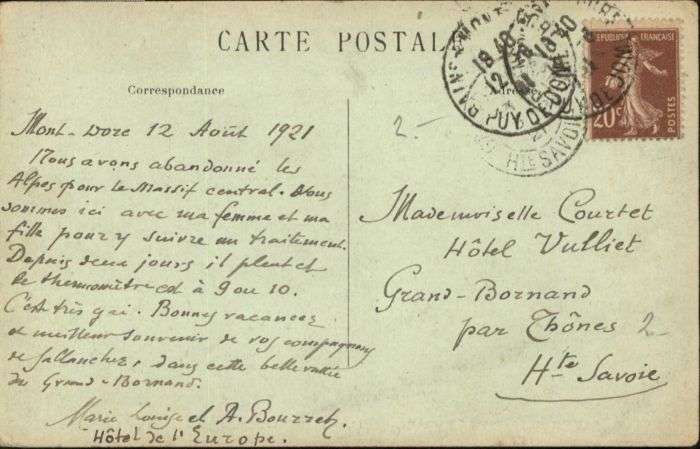 CARTE POSTALE
Correspondance
Adresse
Mont-Dore 12 Août 1921
Nous avons abandonné les
Alpes pour le Massif central. Nous
sommes ici avec ma femme et ma
fille pour y suivre un traitement.
Depuis deux jours il pleut et
le thermomètre est à 9 ou 10.
C'est très gai. Bonnes vacances
et meilleur souvenir de vos compagnons
de Sallanches, dans cette belle vallée
du Grand-Bornand.
Marie Louise et A.
Hôtel de l'Europe.
2-
Mademoiselle Courtet
Hôtel Vulliet
Grand-Bornand
par Thônes 2-
Hte Savoie
18 40
12
PUY DE DOME
18 40
HTE SAVOIE
REPUBLIQUE FRANÇAISE
20c
POSTES